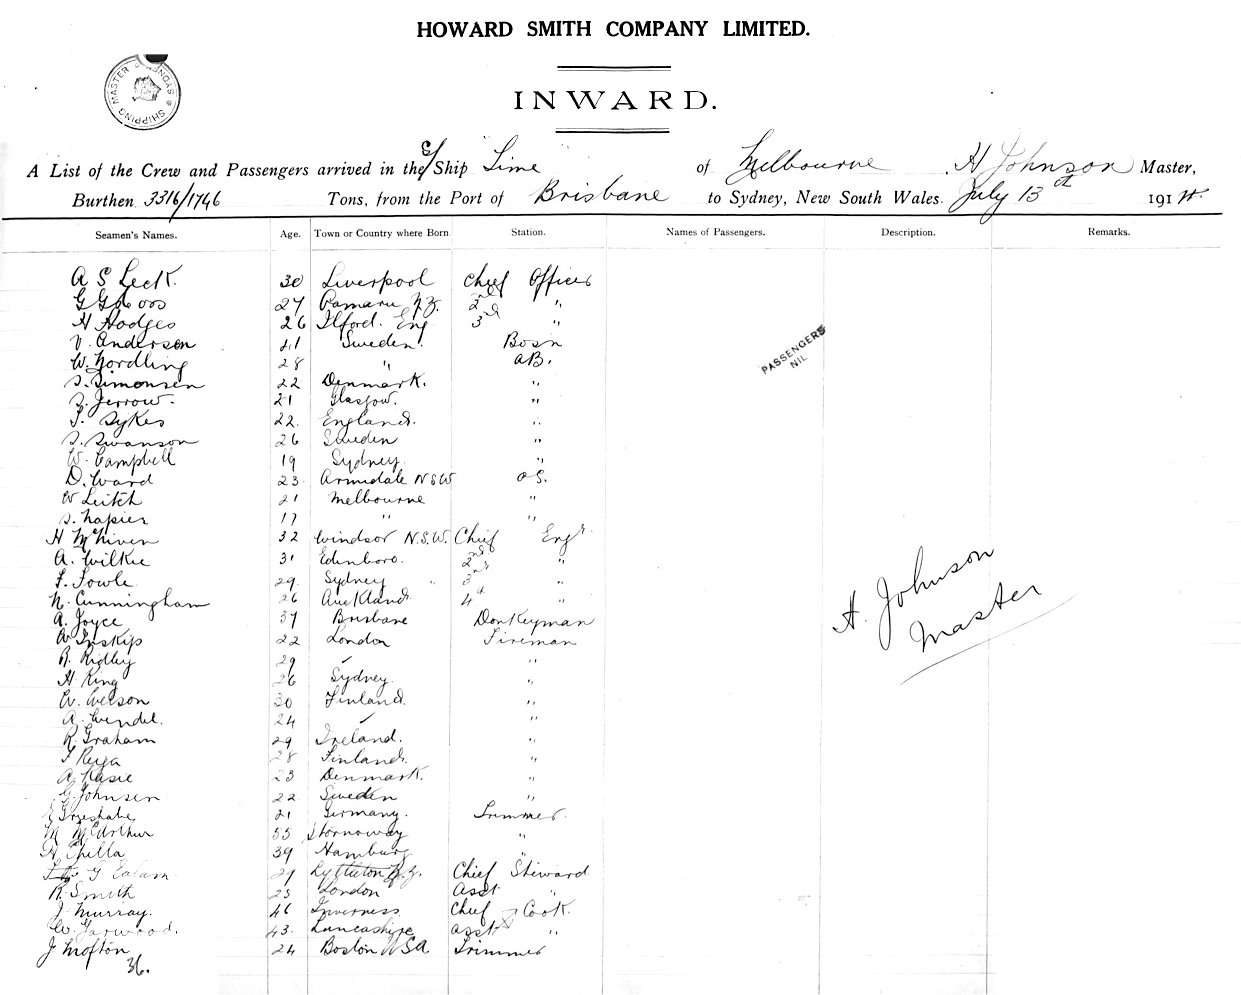 HOWARD SMITH COMPANY LIMITED.
SHIPPING MASTER SYDNEY
INWARD.
A List of the Crew and Passengers arrived in the S/Ship "Time" of Melbourne H Johnson Master,
Burthen 3316/1746 Tons, from the Port of Brisbane to Sydney, New South Wales. July 13th 191
Seamen's Names. Age. Town or Country where Born Station. Names of Passengers. Description. Remarks.
A S Leck. 30 Liverpool Chief Officer
G 27 Oamaru N.Z. 2nd "
H Hodges 26 Ilford. Eng 3rd "
V. Anderson 21 Sweden. Bosn
W. Nordling 28 " AB.
S. Simonsen 22 Denmark. "
21 Glasgow. "
Sykes 22. England. "
S. Swanson 26 Sweden "
W. Campbell 19 Sydney "
D. Ward 23. Armidale NSW OS.
W Leitch 21 Melbourne "
S. Napier 17 " "
H McNiven 32 Windsor N.S.W. Chief Engr
A. Wilkie 31 Edinboro. 2nd "
F. Fowle 29. Sydney " 3rd "
N. Cunningham 26 Auckland 4th "
A. Joyce 37 Brisbane Donkeyman
W Inskip 22 London Fireman
R. Ridley 29 " "
H King 26 Sydney. "
W. Everson 30 Finland. "
A. Wendel. 24 " "
R. Graham 29 Ireland. "
28 Finland. "
A. 23 Denmark. "
G. Johnsen 22 Sweden "
21 Germany. Trimmer.
M McArthur 55 Stornoway "
H 39 Hamburg "
G 27 Lyttleton N.Z. Chief Steward
R. Smith 23 London Asst "
J. Murray. 46 Inverness Chief Cook.
W. Garwood. 43. Lancashire Asst "
J Mofton 24 Boston USA Trimmer
36.
PASSENGERS
NIL
H. Johnson
Master